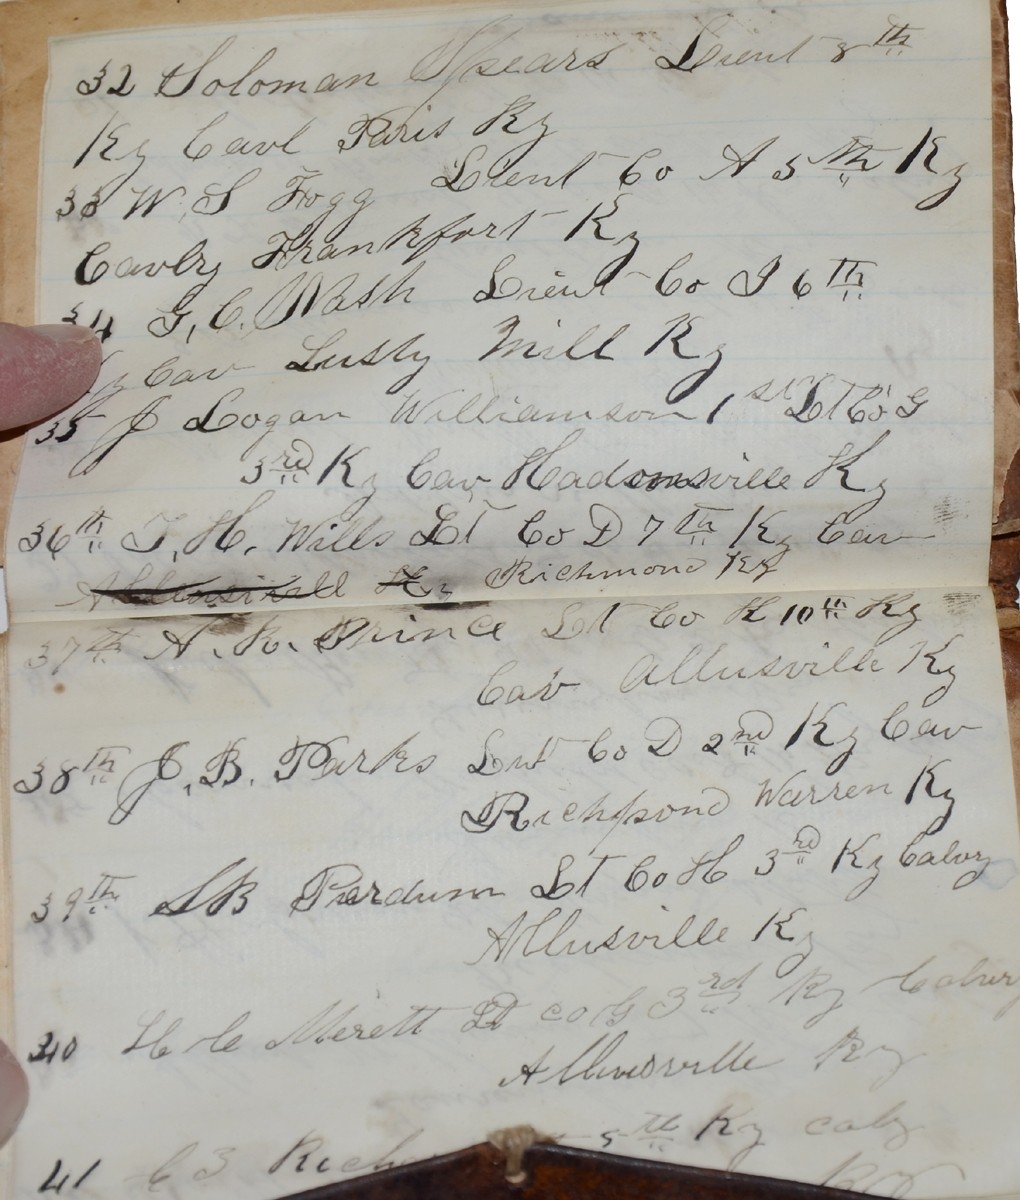 32 Soloman Spears Lieut 8th
Ky Cavl Paris Ky
33 W, S Fogg Lieut Co A 5th Ky
Cavlry Frankfort Ky
34 G, C. Wash Lieut Co I 6th
Ky Cav Lusby Mill Ky
35 J Logan Williamson 1st Lt Co G
3rd Ky Cav, Hadonsville Ky
36th T, H. Wills Lt Co D 7th Ky Cav
Richmond Ky
37th A. R. Prince Lt Co K 10th Ky
Cav Allusville Ky
38th J, B. Parks Lut Co D 2nd Ky Cav
Richpond Warren Ky
39th SB Perdum Lt Co H 3rd Ky Calvy
Allusville Ky
40 H C Merett Lt co G 3rd Ky Calvry
Ky
41 5th Ky calvy